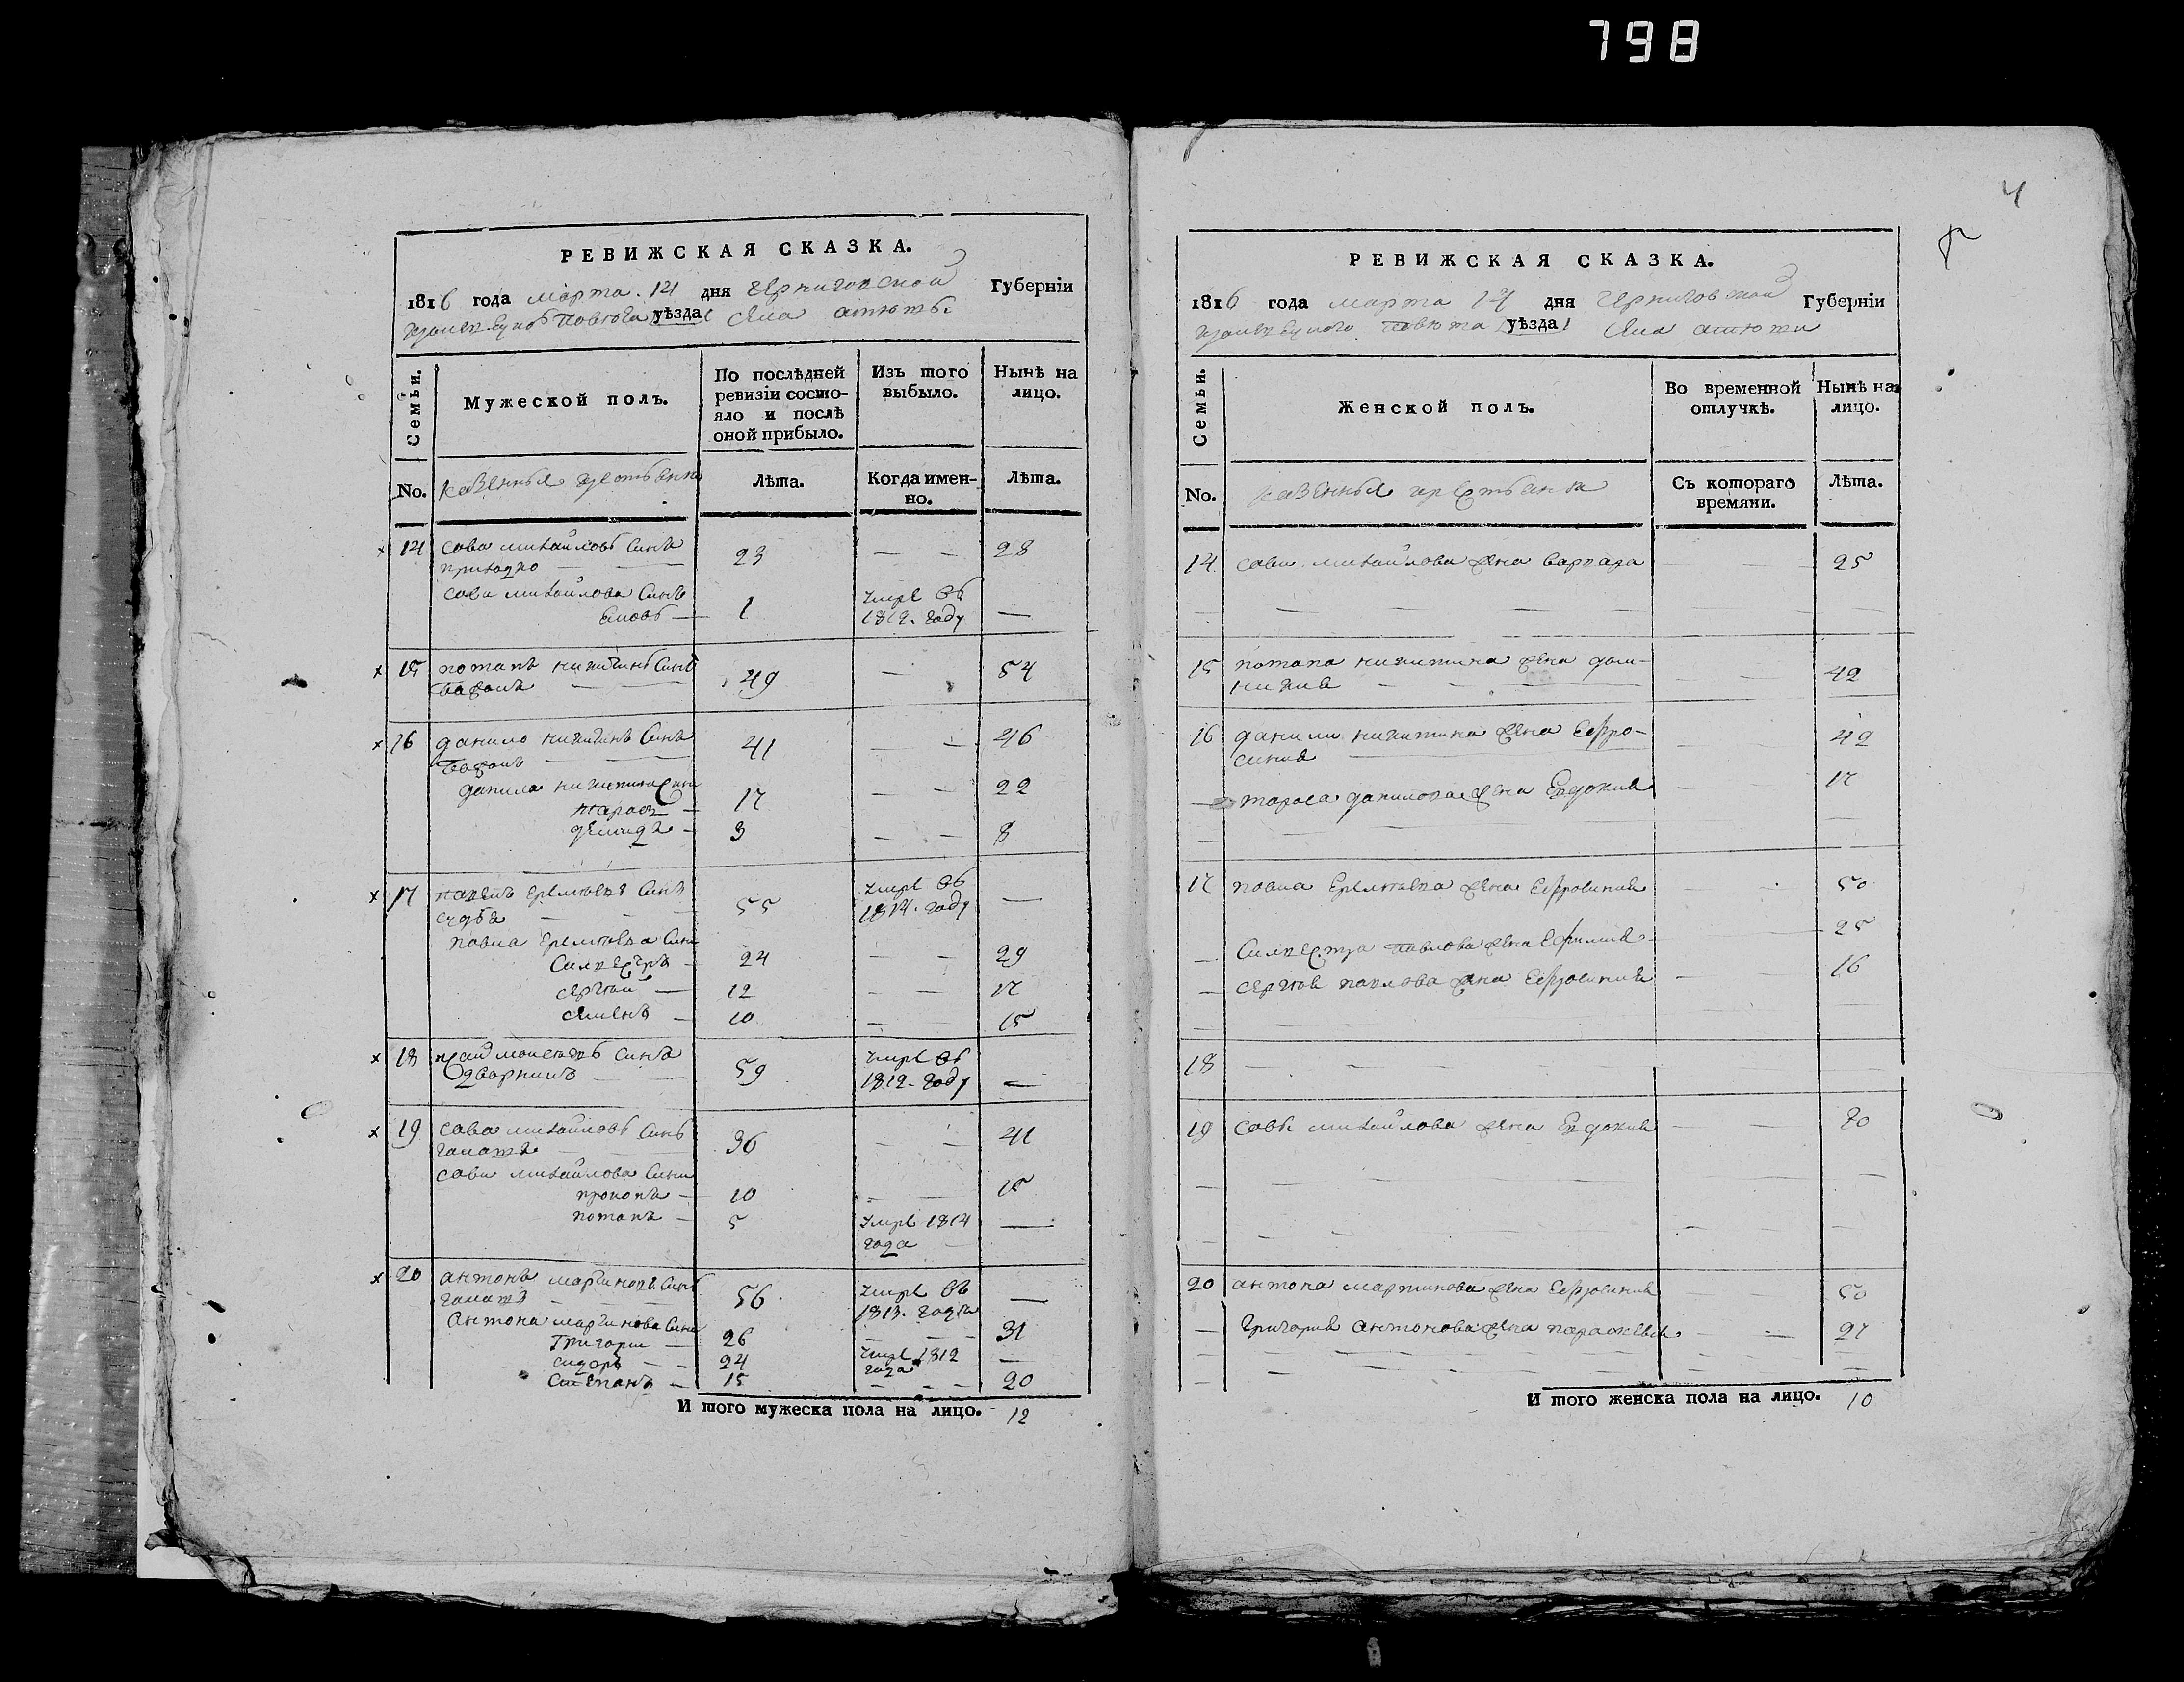 798
4
РЕВИЖСКАЯ СКАЗКА.
1816 года марта 14 дня черниговской Губерніи
повѣта уѣзда села
Семьи. Мужеской полъ. По послѣдней ревизіи состояло и послѣ оной прибыло. Изъ того выбыло. Нынѣ на лицо.
No. казенныя Лѣта. Когда именно. Лѣта.
14 сава михайловъ синъ 23 — — 28
приходко
сави михайлова синъ умре въ
1 1812. году —
15 потапъ никитинъ синъ 49 — 54
16 данило никитинъ синъ 41 — — 46
данила никитина сини
тарасъ 17 — — 22
демидъ 3 — — 8
17 павелъ еремѣевъ синъ 55 умре въ
1814. году —
павла еремѣева сини
силвестръ 24 — — 29
сергѣй 12 — — 17
семенъ 10 — 15
18 синъ умре въ
дворникъ 59 1812. году —
19 сава михайловъ синъ 36 — — 41
галата
сави михайлова сини
прокопъ 10 — — 15
потапъ 5 умре 1814 —
года
20 антонъ мартиновъ синъ 56 умре въ —
галата 1813. года
Антона мартинова сини
григори 26 — — 31
сидоръ 24 умре 1812 —
года
степанъ 15 — — — 20
И того мужеска пола на лицо. 12
РЕВИЖСКАЯ СКАЗКА.
1816 года марта 14 дня черниговской Губерніи
повѣта уѣзда села
Семьи. Женской полъ. Во временной отлучкѣ. Нынѣ на лицо.
No. казенныя Съ котораго времяни. Лѣта.
14 сави михайлова жена варвара — — 25
15 потапа никитина жена дом-
никия — — 42
16 данили никитина жена Евфро-
синия — — 42
тараса данилова жена Евдокия 17
17 павла Еремѣева жена Евфросиния — 50
Силвестра павлова жена Ефимия 25
сергѣя павлова жена Евфросиния — 16
18 — — —
19 сави михайлова жена Евдокия — —
20 антона мартинова жена Евфросиния — — 50
григория антонова жена параскевия — — 27
И того женска пола на лицо. 10